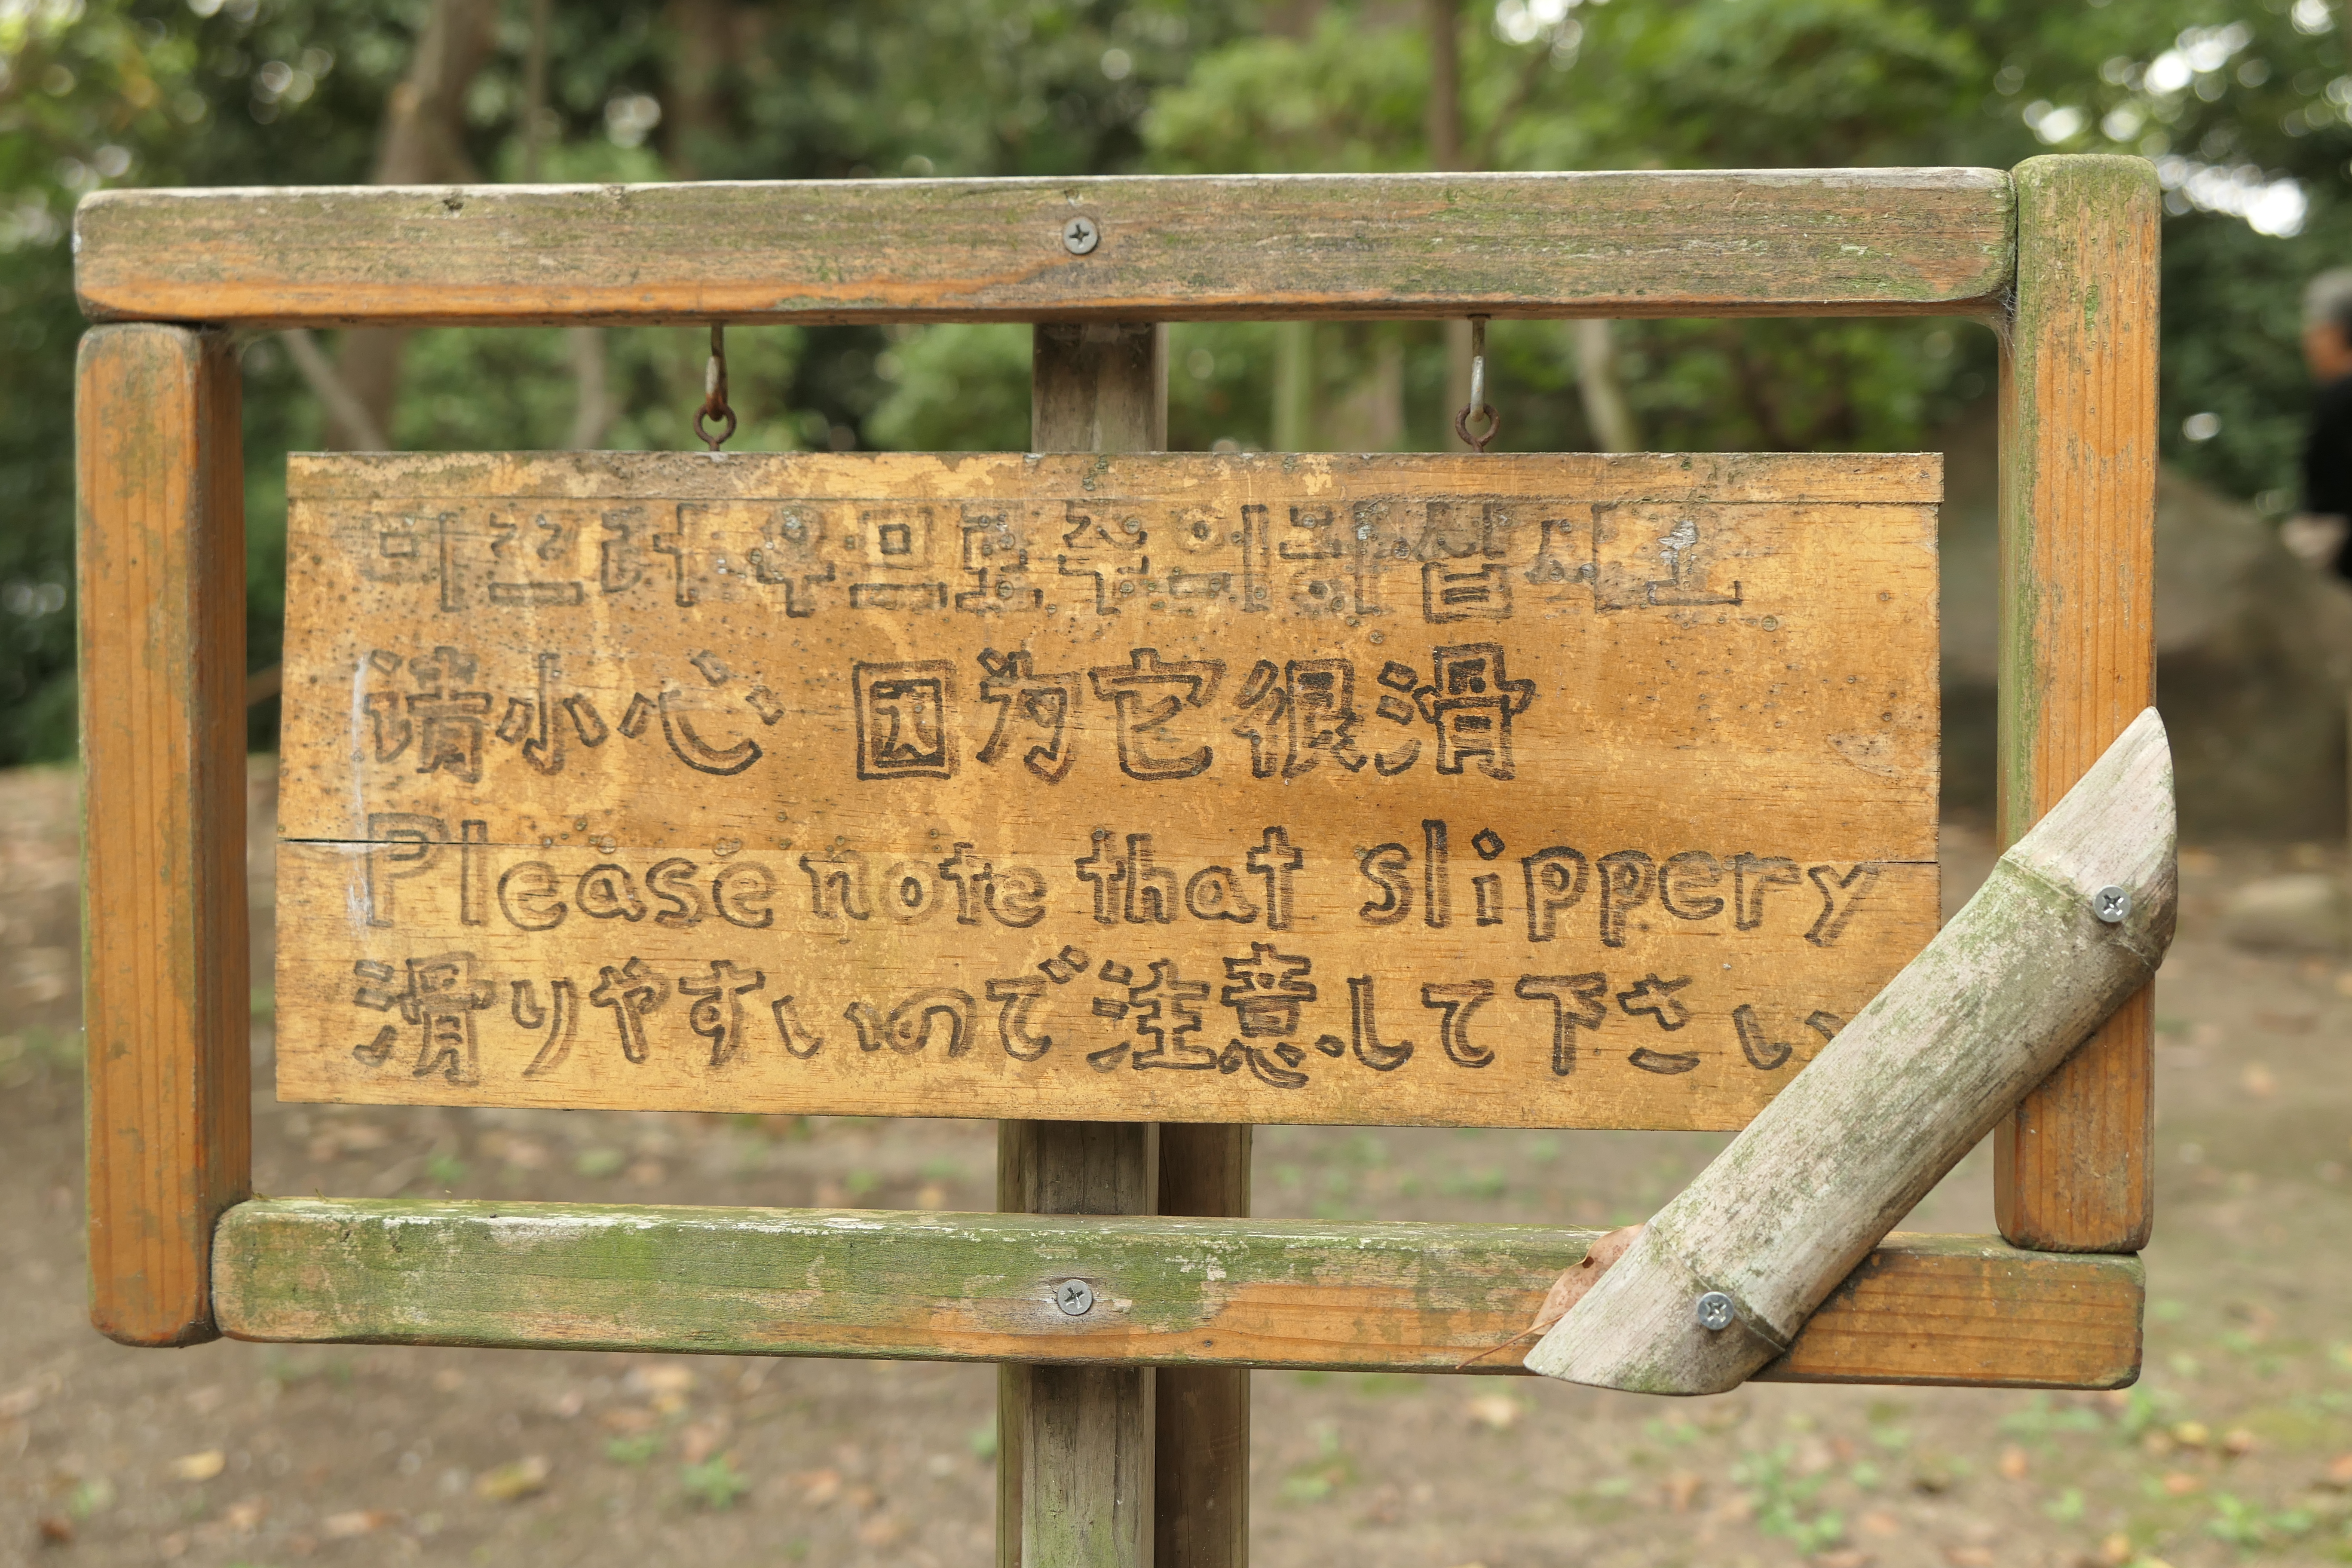 미끄러우므로주의하십시오
请小心 因为它很滑
Please note that slippery
滑りやすいので注意して下さい